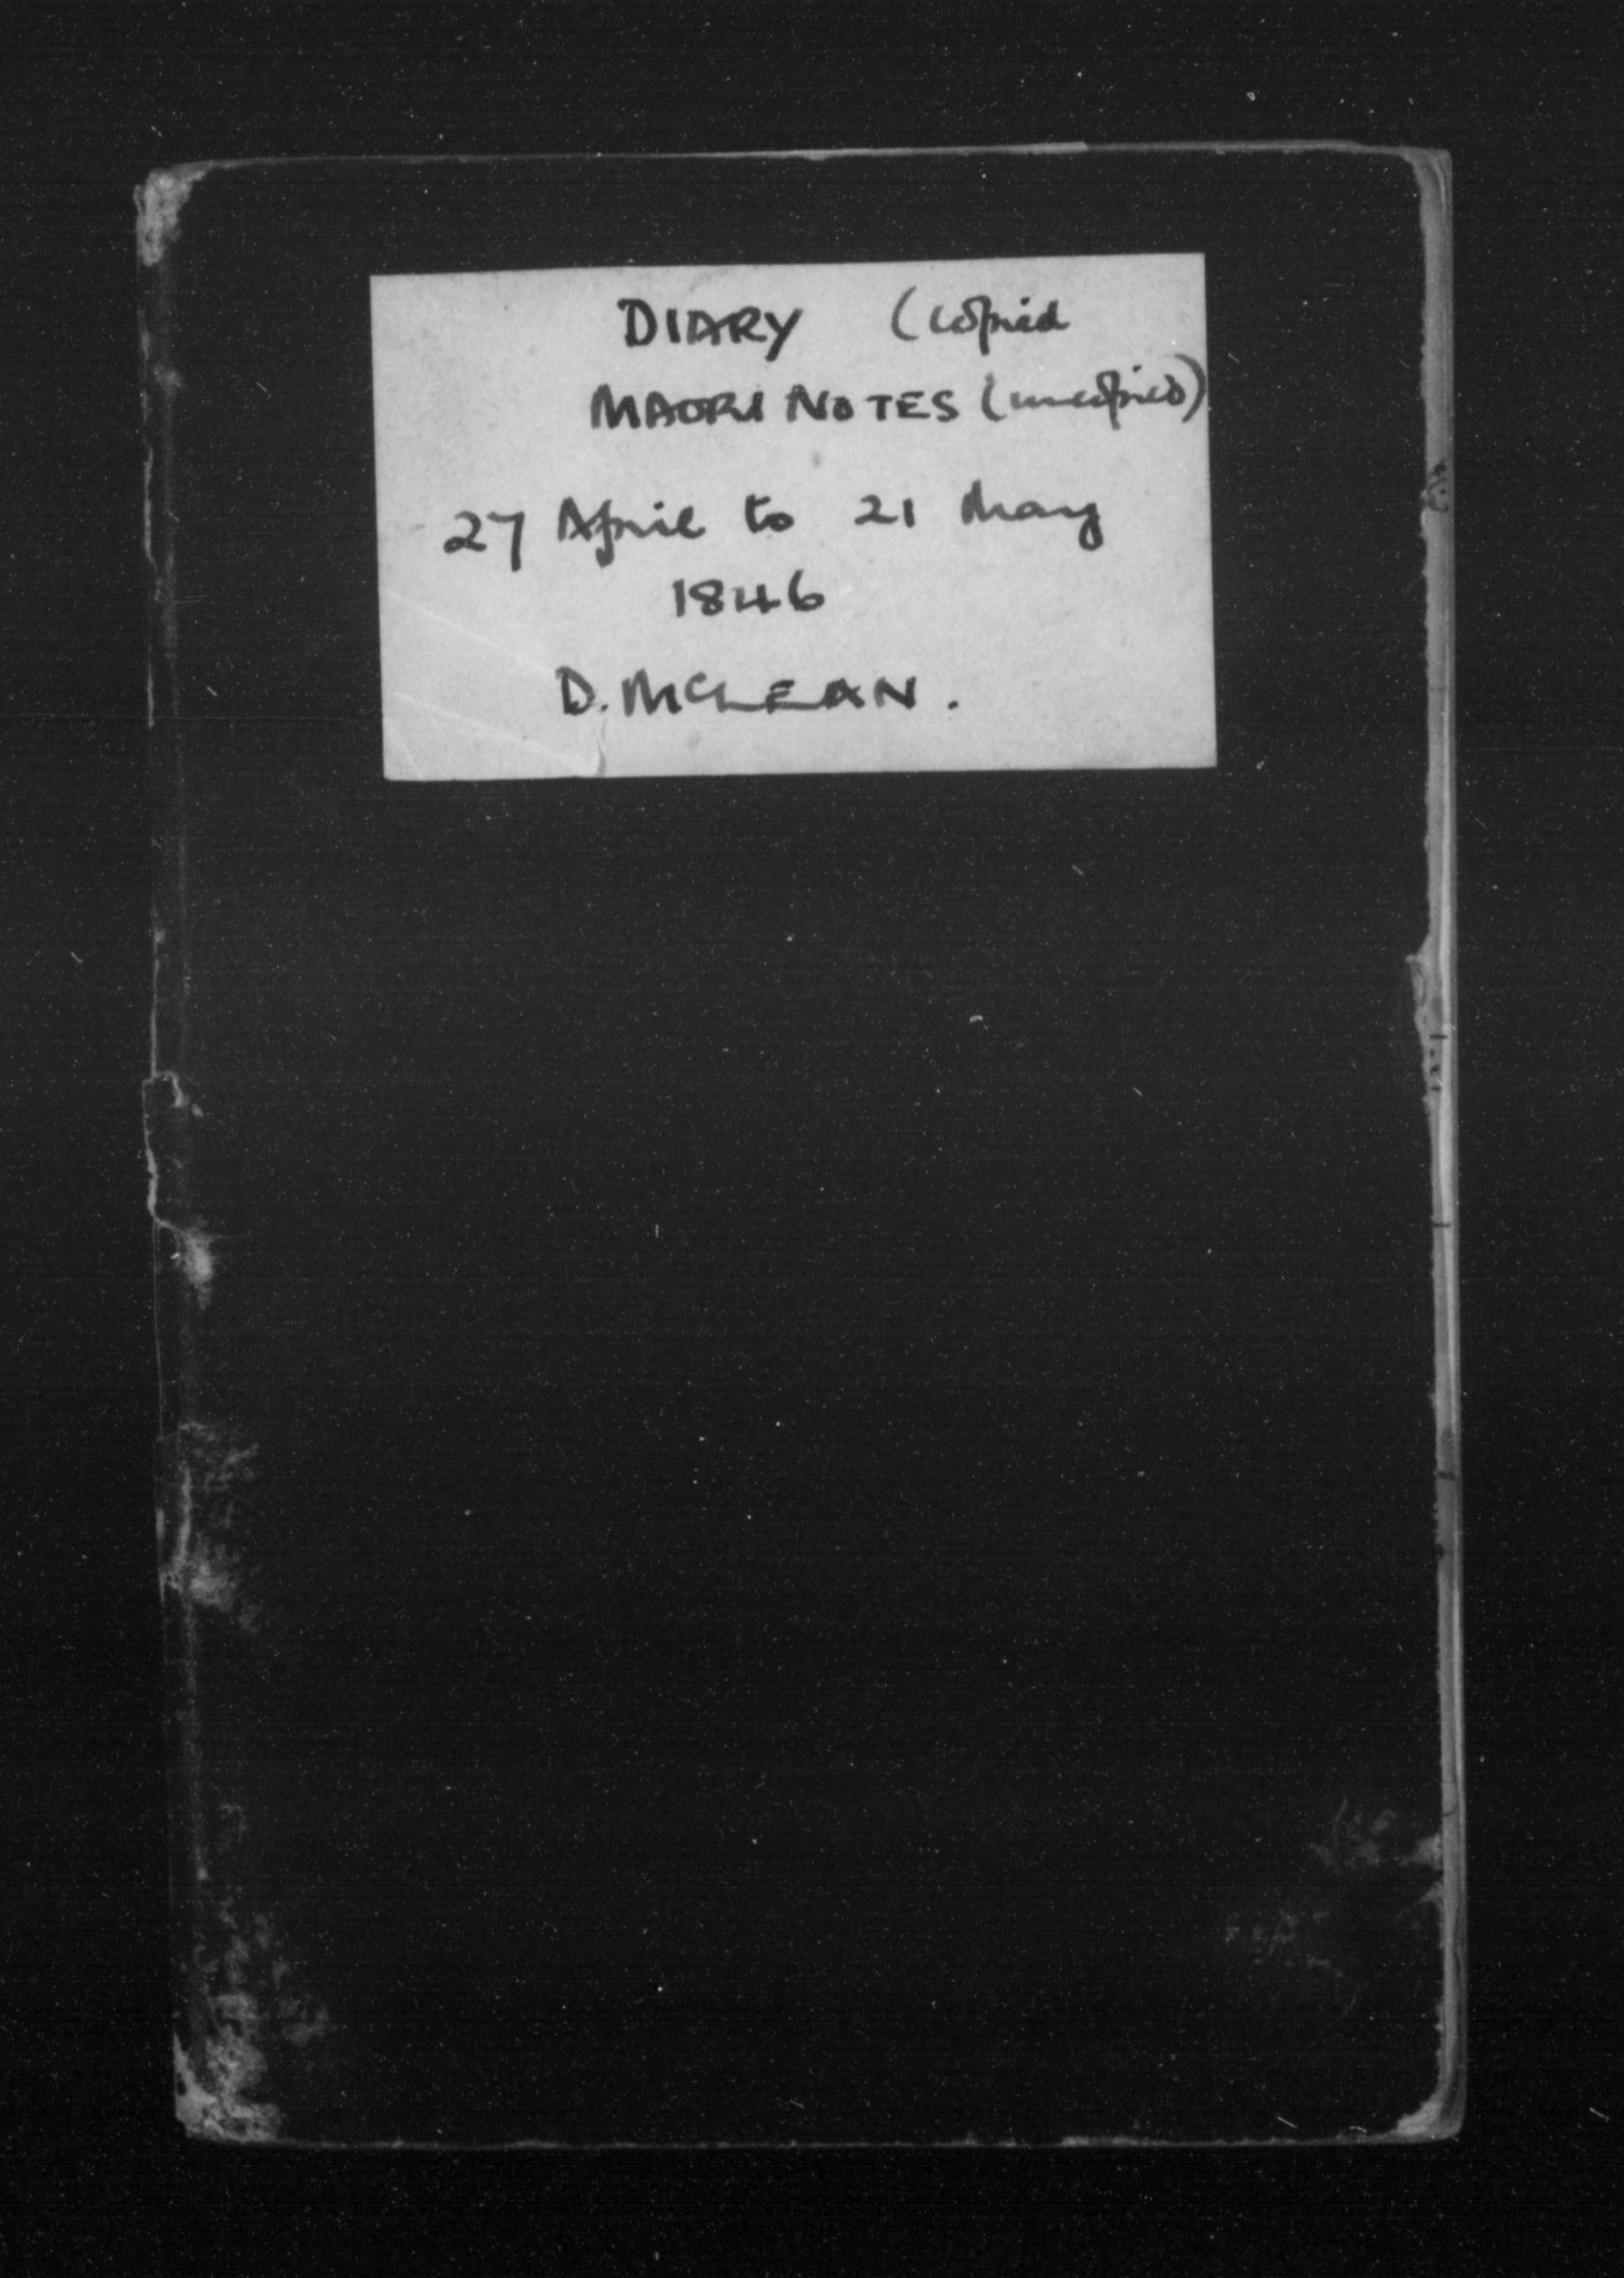 DIARY (copied
MAORI NOTES (uncopied)
27 April to 21 May
1846
D. McLEAN.